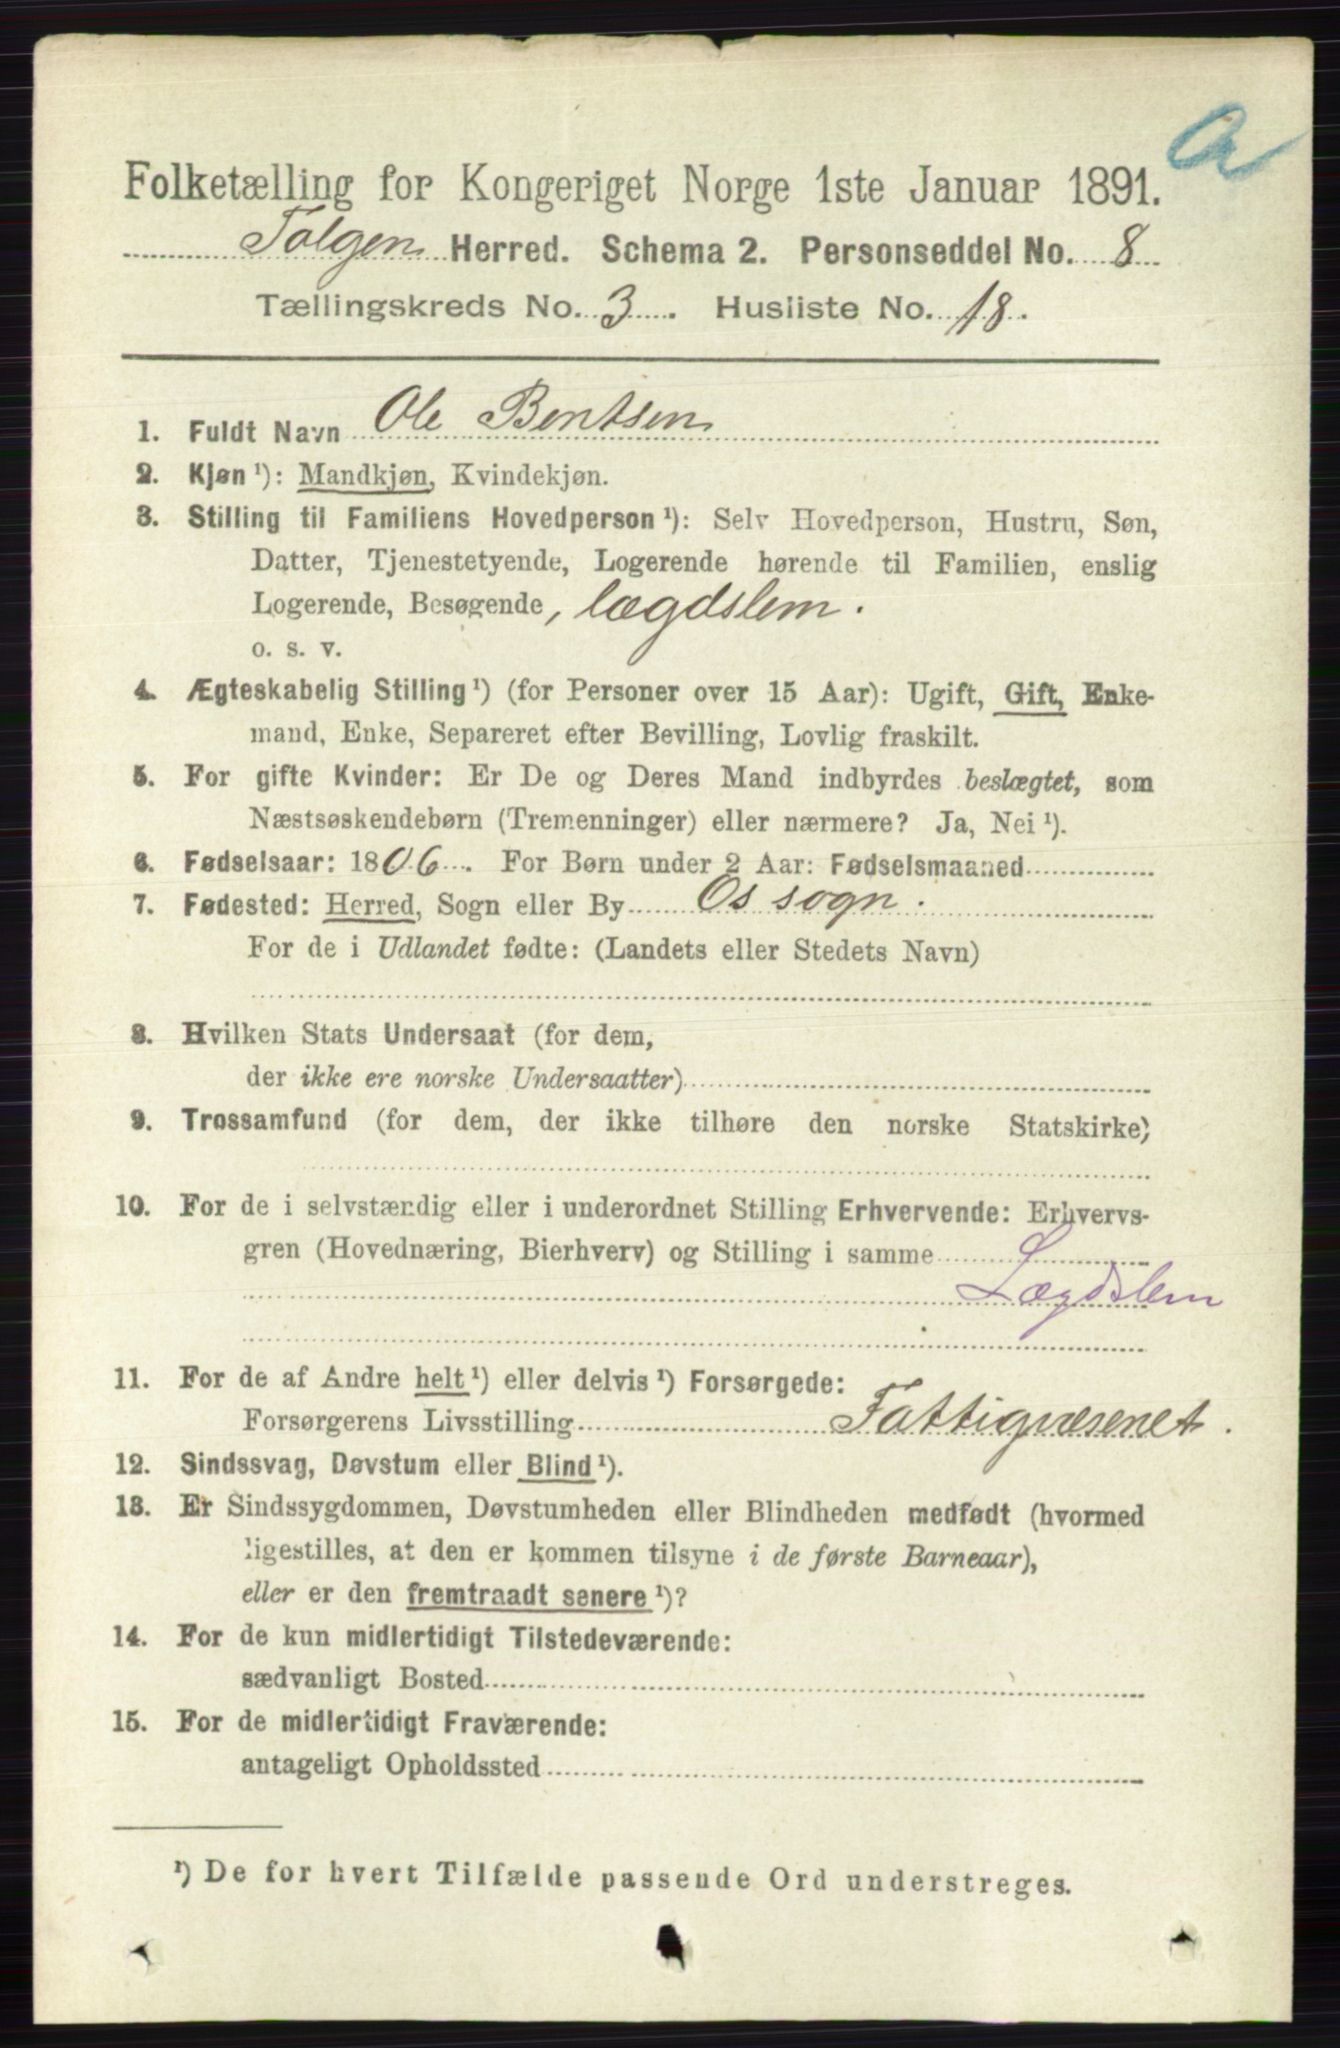 a
Folketælling for Kongeriget Norge 1ste Januar 1891.
Tolgen Herred. Schema 2. Personseddel No. 8
Tællingskreds No. 3. Husliste No. 18.
1. Fuldt Navn Ole Bentsen
2. Kjøn ¹): Mandkjøn, Kvindekjøn.
3. Stilling til Familiens Hovedperson ¹): Selv Hovedperson, Hustru, Søn,
Datter, Tjenestetyende, Logerende hørende til Familien, enslig
Logerende, Besøgende, lægdslem.
o. s. v.
4. Ægteskabelig Stilling ¹) (for Personer over 15 Aar): Ugift, Gift, Enke-
mand, Enke, Separeret efter Bevilling, Lovlig fraskilt.
5. For gifte Kvinder: Er De og Deres Mand indbyrdes beslægtet, som
Næstsøskendebørn (Tremenninger) eller nærmere? Ja, Nei ¹).
6. Fødselsaar: 1806. For Børn under 2 Aar: Fødselsmaaned
7. Fødested: Herred, Sogn eller By Os sogn.
For de i Udlandet fødte: (Landets eller Stedets Navn)
8. Hvilken Stats Undersaat (for dem,
der ikke ere norske Undersaatter)
9. Trossamfund (for dem, der ikke tilhøre den norske Statskirke)
10. For de i selvstændig eller i underordnet Stilling Erhvervende: Erhvervs-
gren (Hovednæring, Bierhverv) og Stilling i samme
Lægdslem
11. For de af Andre helt ¹) eller delvis ¹) Forsørgede:
Forsørgerens Livsstilling Fattigvæsenet.
12. Sindssvag, Døvstum eller Blind ¹).
13. Er Sindssygdommen, Døvstumheden eller Blindheden medfødt (hvormed
ligestilles, at den er kommen tilsyne i de første Barneaar),
eller er den fremtraadt senere ¹)?
14. For de kun midlertidigt Tilstedeværende:
sædvanligt Bosted
15. For de midlertidigt Fraværende:
antageligt Opholdssted
¹) De for hvert Tilfælde passende Ord understreges.